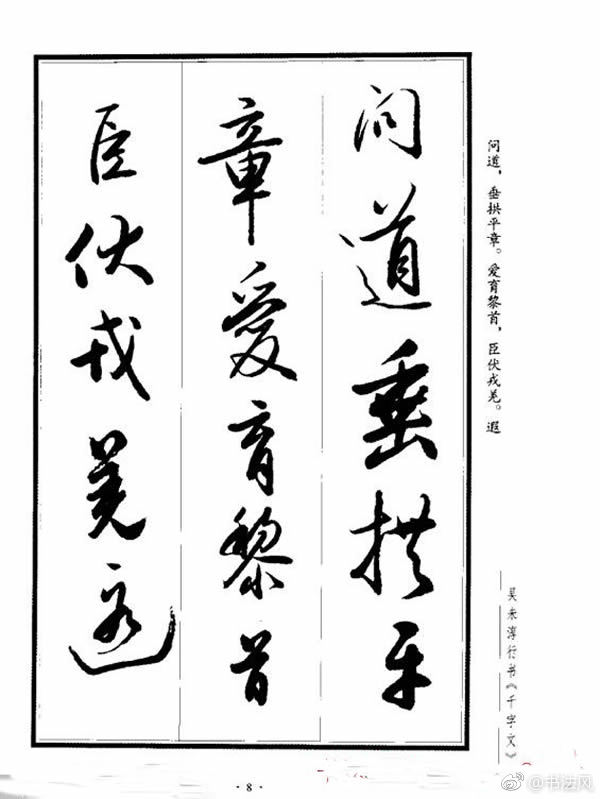 问道垂拱平
章爱育黎首
臣伏戎羌遐
问道，垂拱平章。爱育黎首，臣伏戎羌。遐
吴未淳行书《千字文》
· 8 ·
@书法风